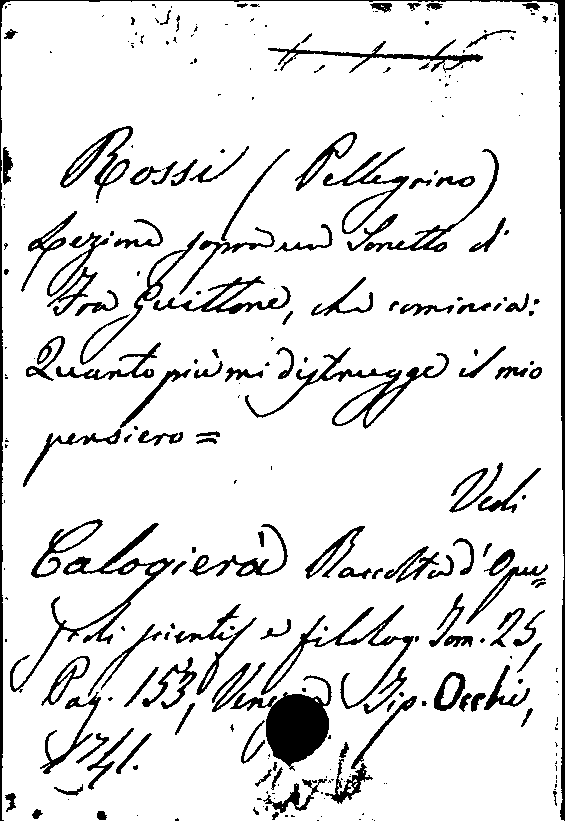 Rossi (Pellegrino)
Lezione sopra un Sonetto di
Fra Guittone, che comincia:
Quanto più mi distrugge il mio
pensiero =
Vedi
Calogierà Raccolta d'Opu=
scoli scientif e filolog. Tom. 25,
Pag. 153, Venezia Tip. Occhi,
1741.